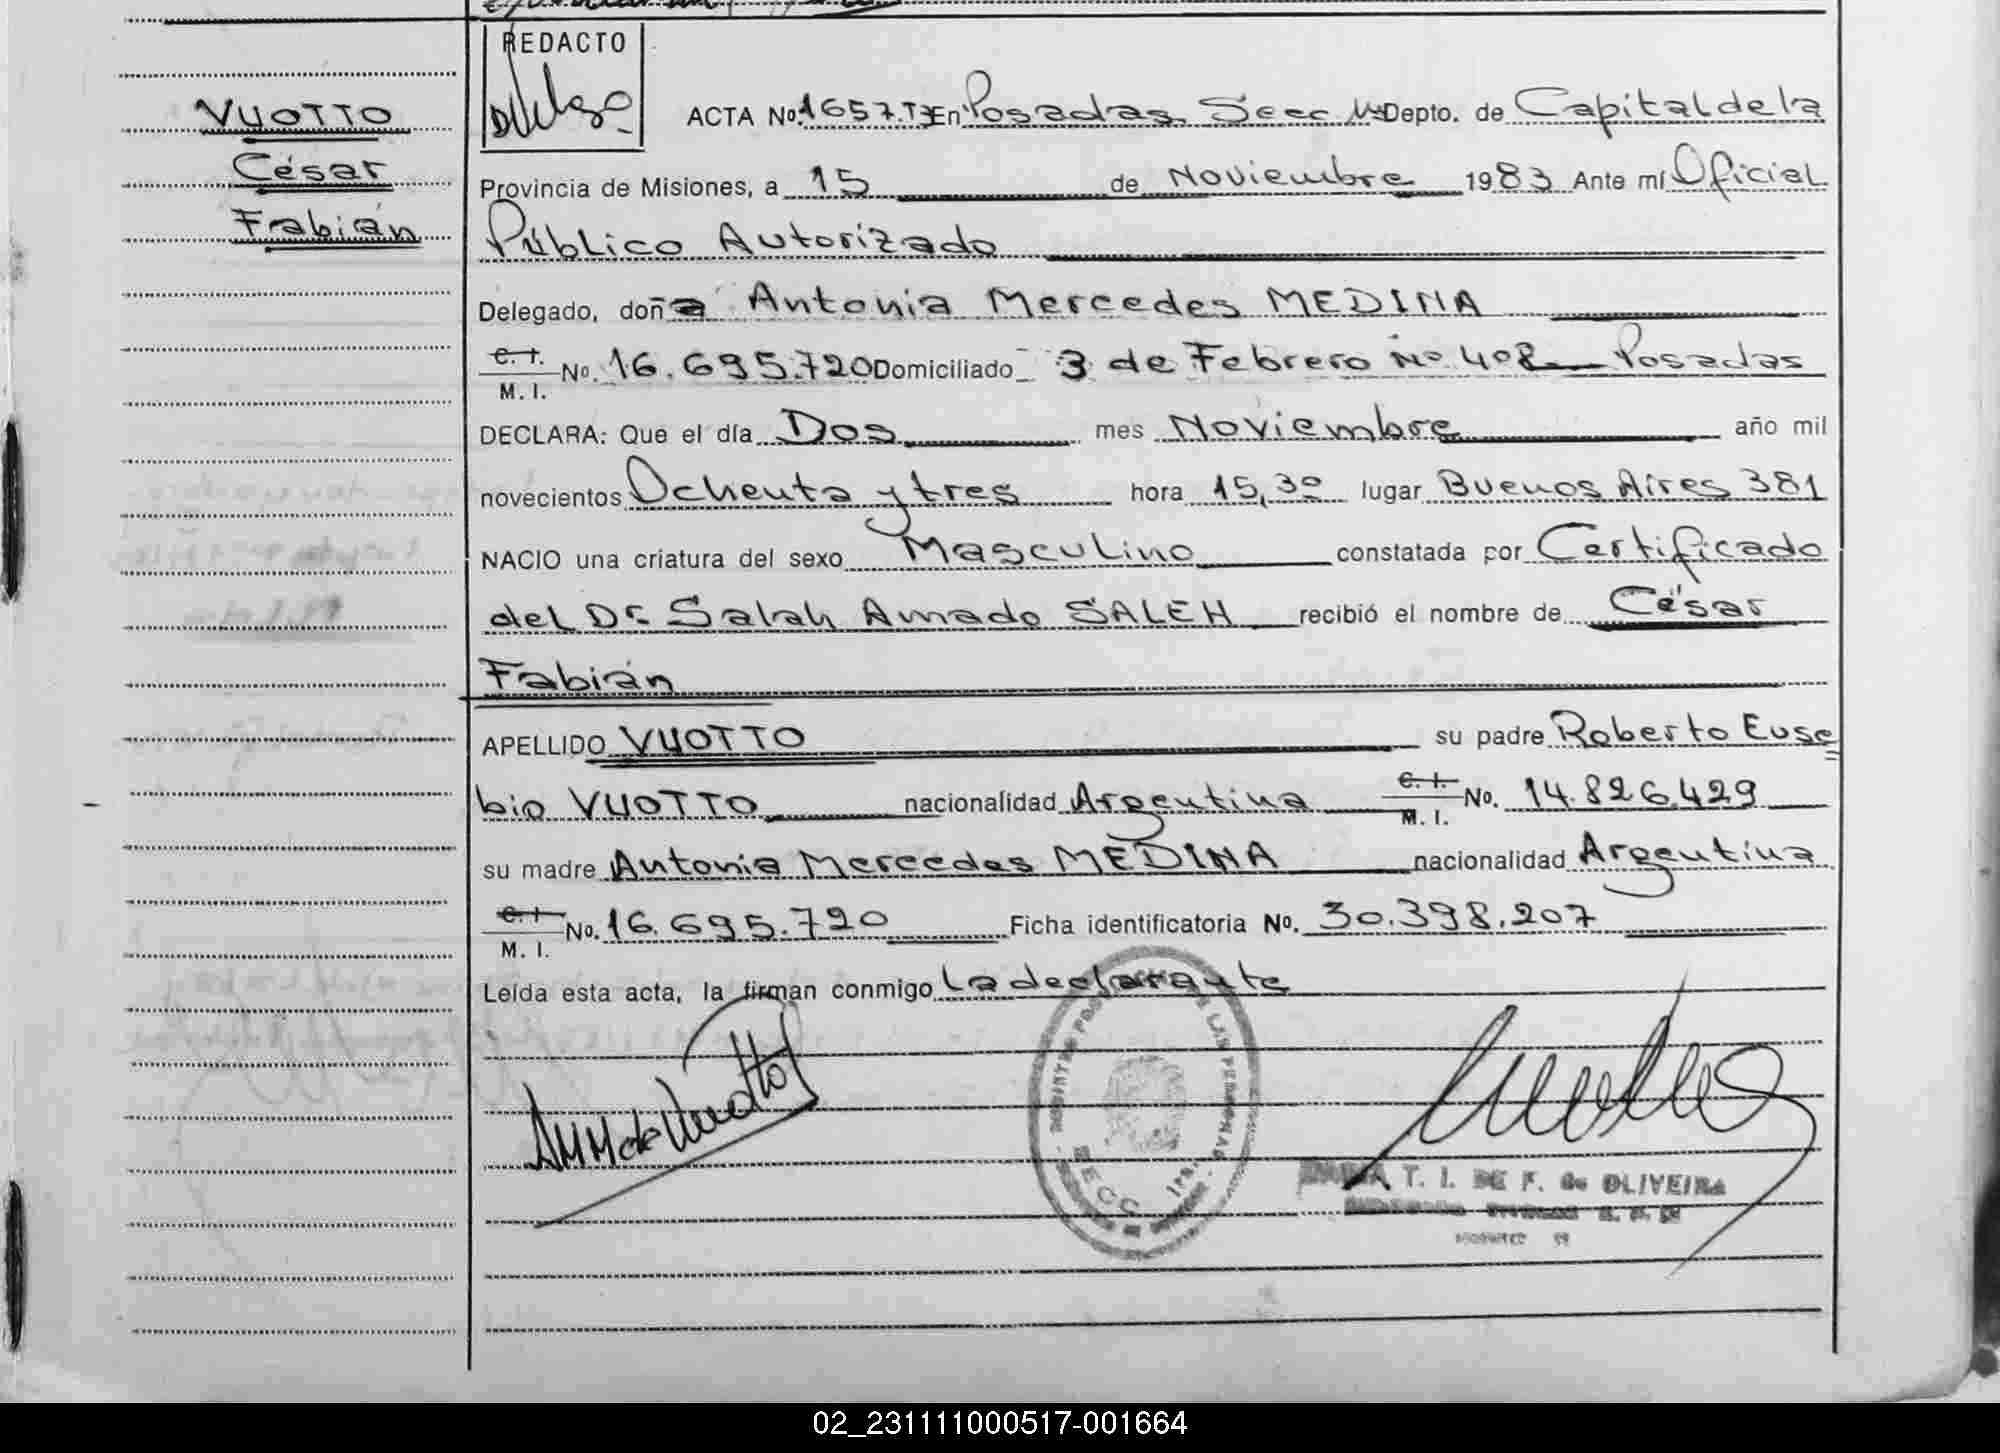 REDACTO
VUOTTO
César
Fabián
ACTA No. 1657. T3 En Posadas Secc 1a Depto. de Capital de la
Provincia de Misiones, a 15 de Noviembre 1983 Ante mí Oficial
Público Autorizado
Delegado, doña Antonia Mercedes MEDINA
C. I.
M. I. No. 16.695.720 Domiciliado 3 de Febrero No 408 Posadas
DECLARA: Que el día Dos mes Noviembre año mil
novecientos Ochenta y tres hora 15,30 lugar Buenos Aires 381
NACIO una criatura del sexo Masculino constatada por Certificado
del Dr. Salah Amado SALEH recibió el nombre de César
Fabián
APELLIDO VUOTTO su padre Roberto Euse
bio VUOTTO nacionalidad Argentina C. I. M. I. No. 14.826.429
su madre Antonia Mercedes MEDINA nacionalidad Argentina
C. I.
M. I. No. 16.695.720 Ficha identificatoria No. 30.398.207
Leída esta acta, la firman conmigo la declarante
AMM de Vuotto
LAS PERSONAS
SECC 1ra.
T. I. DE F. de OLIVEIRA
02_231111000517-001664